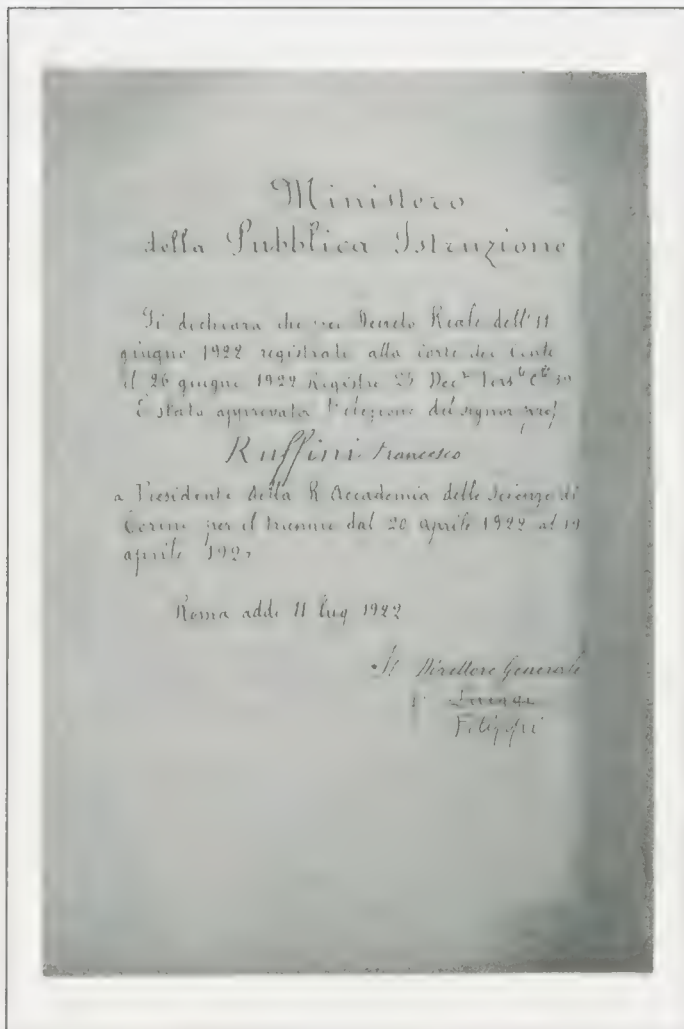 Ministero
della Pubblica Istruzione
Si dichiara che per Decreto Reale dell'11
giugno 1922 registrato alla Corte dei Conti
il 26 giugno 1922 Registro 25
È stato approvata l'elezione del signor prof
Ruffini Francesco
a Presidente della R Accademia delle Scienze di
Torino per il triennio dal 20 aprile 1922 al 19
aprile
Roma addì 11 lug 1922
Il Direttore Generale
Filippi